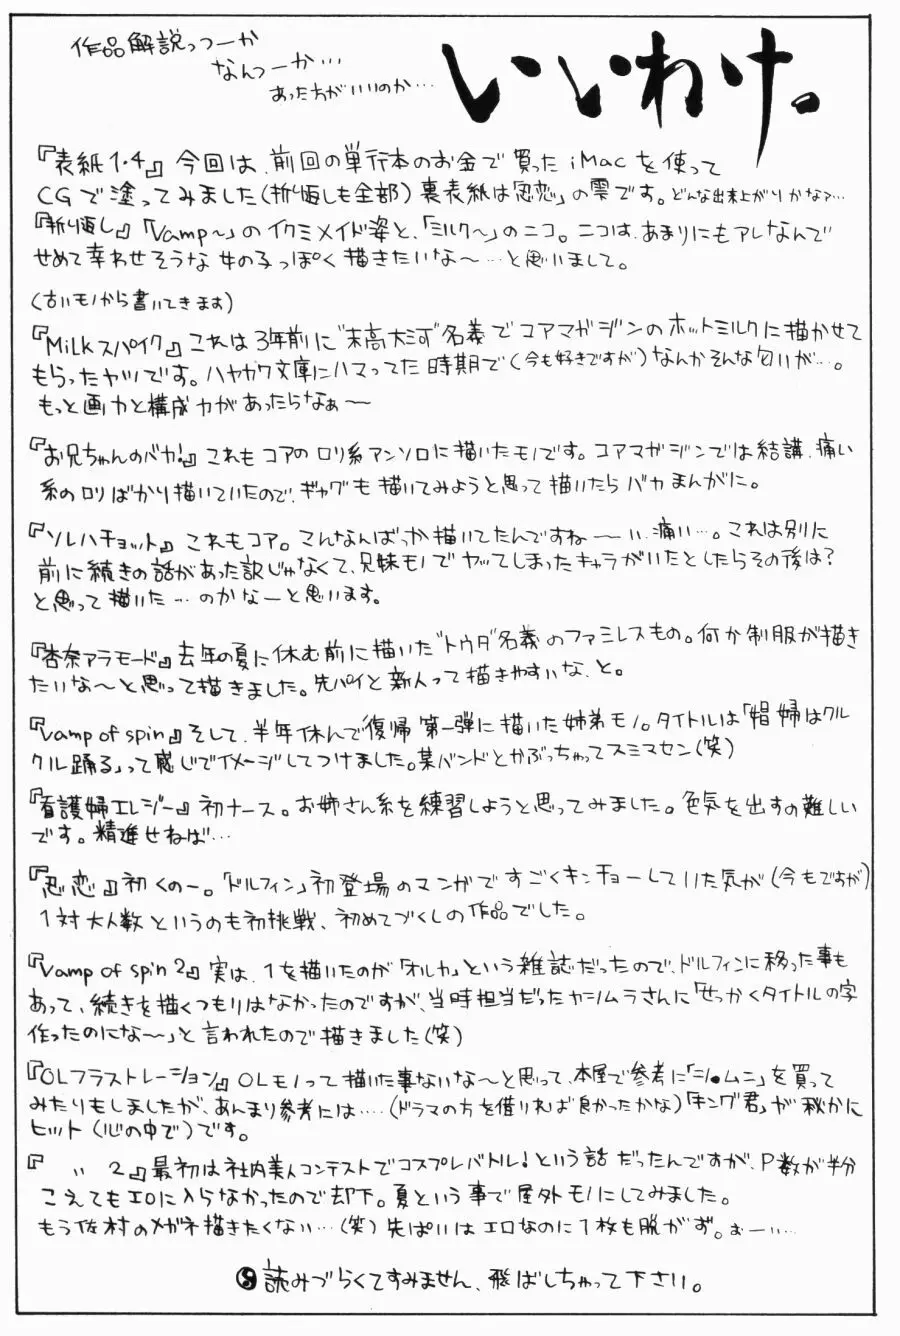 作品解説っつーか
なんつーか…
あった方がいいのか…
いいわけ。
『表紙1・4』今回は、前回の単行本のお金で買ったiMacを使って
CGで塗ってみました(折返しも全部)裏表紙は「忍恋」の雫です。どんな出来上がりかなァ…
『折り返し』「Vamp〜」のイクミメイド姿と、「ミルク〜」のニコ。ニコは、あまりにもアレなんで
せめて幸わせそうな女の子っぽく描きたいな〜…と思いまして。
(古いモノから書いてきます)
『Milkスパイク』これは3年前に"末高大河"名義でコアマガジンのホットミルクに描かせて
もらったヤツです。ハヤカワ文庫にハマってた時期で(今も好きですが)なんかそんな匂いが…。
もっと画力と構成力があったらなぁ〜
『お兄ちゃんのバカ!』これもコアのロリ系アンソロに描いたモノです。コアマガジンでは結講、痛い
系のロリばかり描いていたので、ギャグも描いてみようと思って描いたらバカまんがに。
『ソレハチョット』これもコア。こんなんばっか描いてたんですね〜い、痛い…。これは別に
前に続きの話があった訳じゃなくて、兄妹モノでヤッてしまったキャラがいたとしたらその後は?
と思って描いた…のかなーと思います。
『杏奈アラモード』去年の夏に休む前に描いた"トウダ"名義のファミレスもの。何か制服が描き
たいな〜と思って描きました。先パイと新人って描きやすいな、と。
『Vamp of spin』そして、半年休んで復帰第一弾に描いた姉弟モノ。タイトルは「娼婦はクル
クル踊る」って感じでイメージしてつけました。某バンドとかぶっちゃってスミマセン(笑)
『看護婦エレジー』初ナース。お姉さん系を練習しようと思ってみました。色気を出すの難しい
です。精進せねば…
『忍恋』初くの一。「ドルフィン」初登場のマンガですごくキンチョーしていた気が(今もですが)
1対大人数というのも初挑戦、初めてづくしの作品でした。
『Vamp of spin 2』実は、1を描いたのが「オルカ」という雑誌だったので、ドルフィンに移った事も
あって、続きを描くつもりはなかったのですが、当時担当だったヤシムラさんに「せっかくタイトルの字
作ったのにな〜」と言われたので描きました(笑)
『OLフラストレーション』OLモノって描いた事ないな〜と思って、本屋で参考に「シ●ムニ」を買って
みたりもしましたが、あんまり参考には…(ドラマの方を借りれば良かったかな)「キング君」が秘かに
ヒット(心の中で)です。
『 〃 2』最初は社内美人コンテストでコスプレバトル!という話だったんですが、P数が半分
こえてもエロに入らなかったので却下。夏という事で屋外モノにしてみました。
もう佐村のメガネ描きたくない…(笑)先ぱいはエロなのに1枚も脱がず。ぉー…
読みづらくてすみません、飛ばしちゃって下さい。